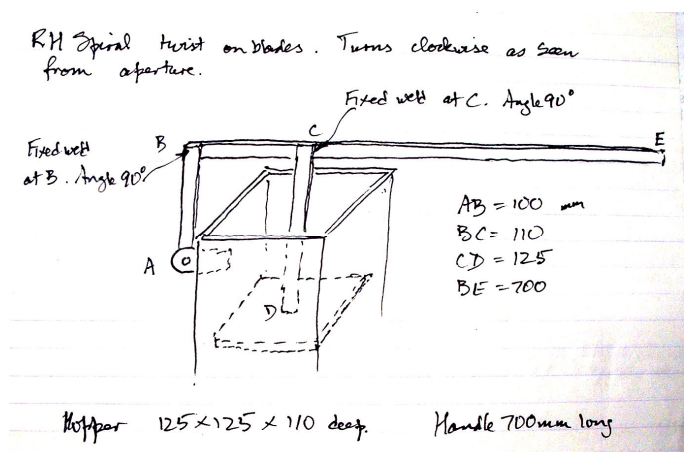 RH Spiral twist on blades. Turns clockwise as seen
from aperture.
Fixed weld at C. Angle 90°
Fixed weld
at B. Angle 90°
B
C
E
A
D
AB = 100 mm
BC = 110
CD = 125
BE = 700
Hopper 125 × 125 × 110 deep.
Handle 700mm long